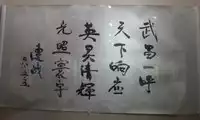 武昌一呼
天下响应
英灵清辉
光照寰宇